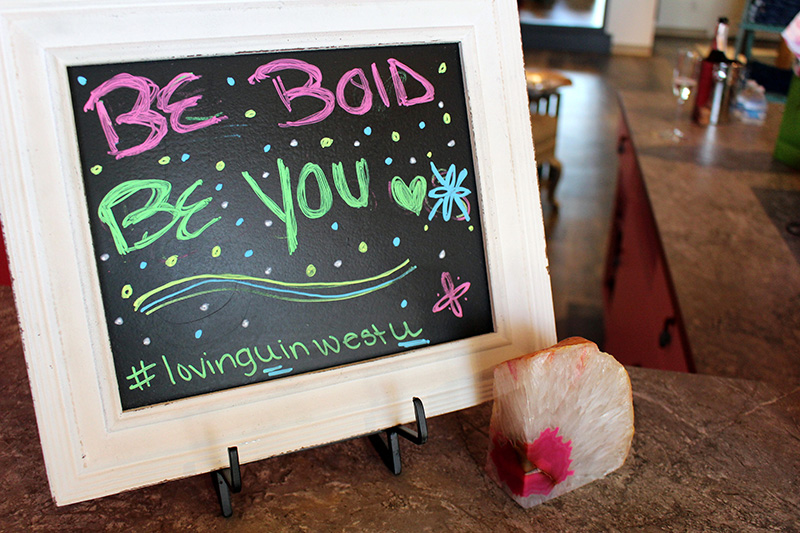 BE BOLD
BE YOU
#lovinguinwestu